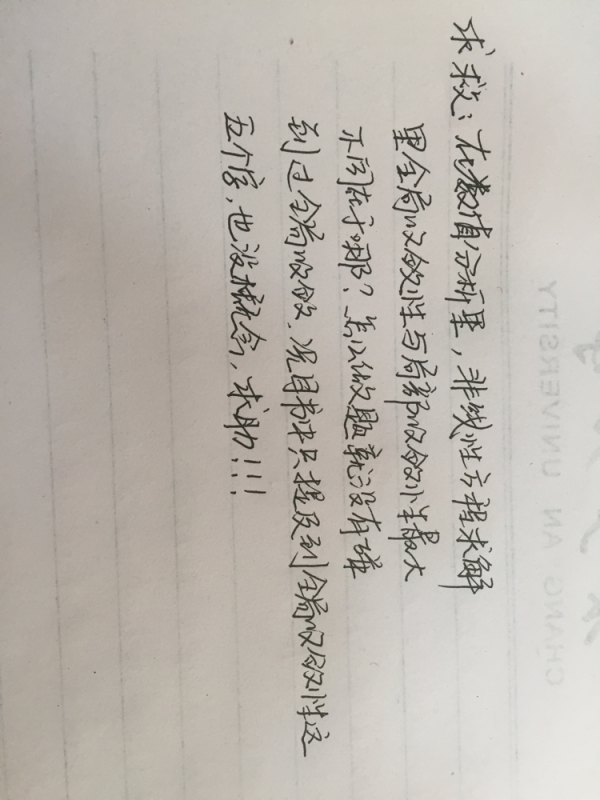 求救：在数值分析里，非线性方程求解
里全局收敛性与局部收敛性最大
不同在于哪？怎么做题就没有碰
到过全局收敛，况且书本只提及到全局收敛性这
五个字，也没概念，求助！！！
CHANG AN UNIVERSITY